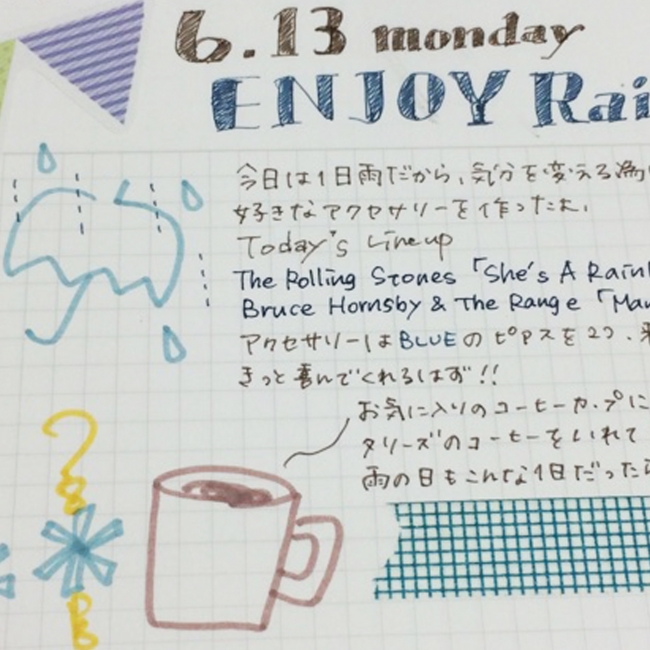 6.13 monday
ENJOY Rai
今日は1日雨だから、気分を変える為
好きなアクセサリーを作ったよ。
Today's Lineup
The Rolling Stones 「She's A Rain
Bruce Hornsby & The Range 「Man
アクセサリーはBLUEのピアスを2つ、
きっと喜んでくれるはず!!
お気に入りのコーヒーカップに
タリーズのコーヒーをいれて
雨の日もこんな1日だったら